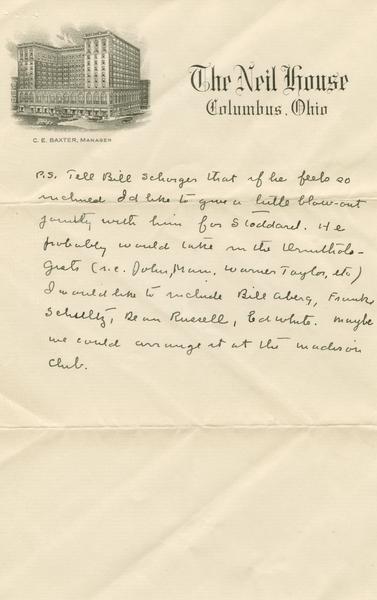 The Neil House
Columbus, Ohio
C. E. BAXTER, MANAGER
P.S. Tell Bill Schorger that if he feels so
inclined I'd like to give a little blow-out
jointly with him for Stoddard. He
probably would take in the Ornitholo-
gists (i.e. John Main, Warner Taylor, etc)
I would like to include Bill Aberg, Frank
Schultz, Dean Russell, Ed White. Maybe
we could arrange it at the Madison
Club.